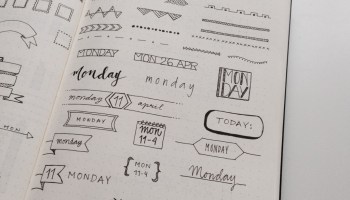 MONDAY
MON 26 APR
monday
monday
MON
DAY
monday 11 april
MONDAY
MON
11-4
TODAY:
MONDAY
MON
11 MONDAY
MON
11-4
Monday